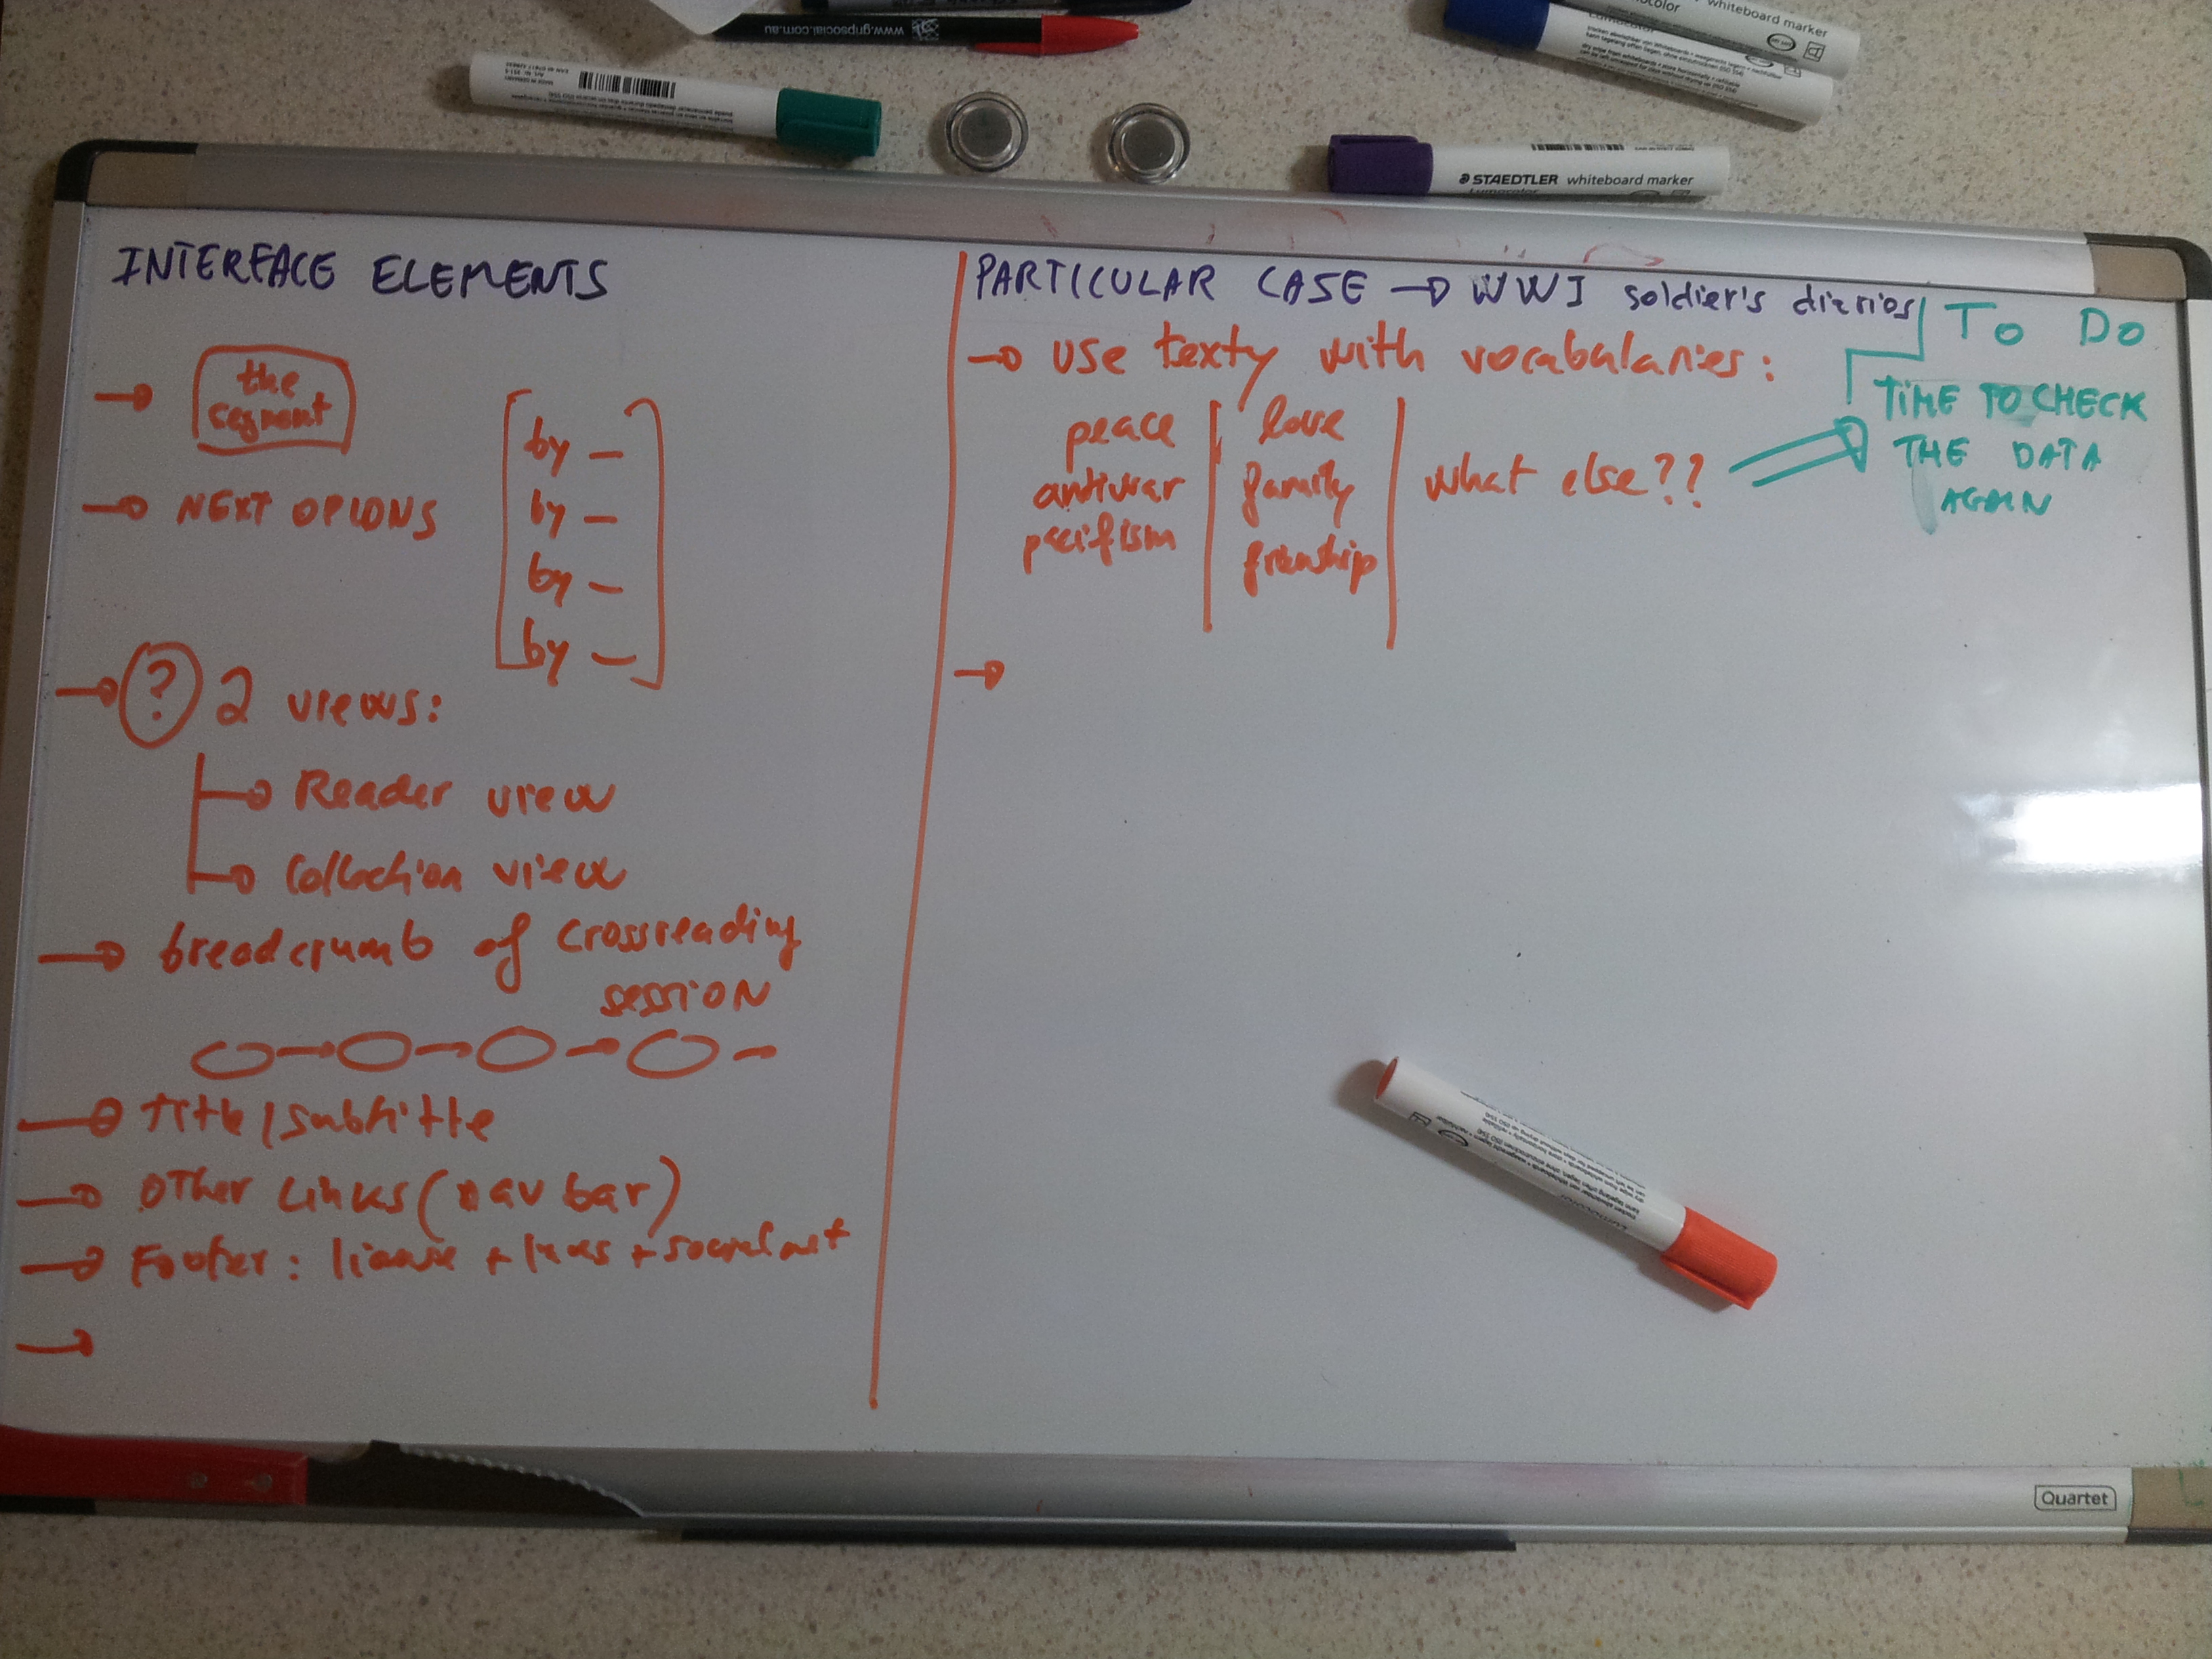 www.gripsocial.com.au
whiteboard marker
STAEDTLER whiteboard marker
Lumocolor
INTERFACE ELEMENTS
→ the
segment
→ NEXT OPIONS
by —
by —
by —
by —
→ ? 2 views:
→ Reader view
→ Collection view
→ breadcrumb of crossreading
session
→ Title/subtitle
→ OTHer Links (nav bar)
→ Footer: + + social net
PARTICULAR CASE → WWI soldier's diaries
→ use texty with vocabularies:
peace
antiwar
pacifism
love
family
frienship
what else??
TO DO
TIME TO CHECK
THE DATA
AGAIN
Quartet